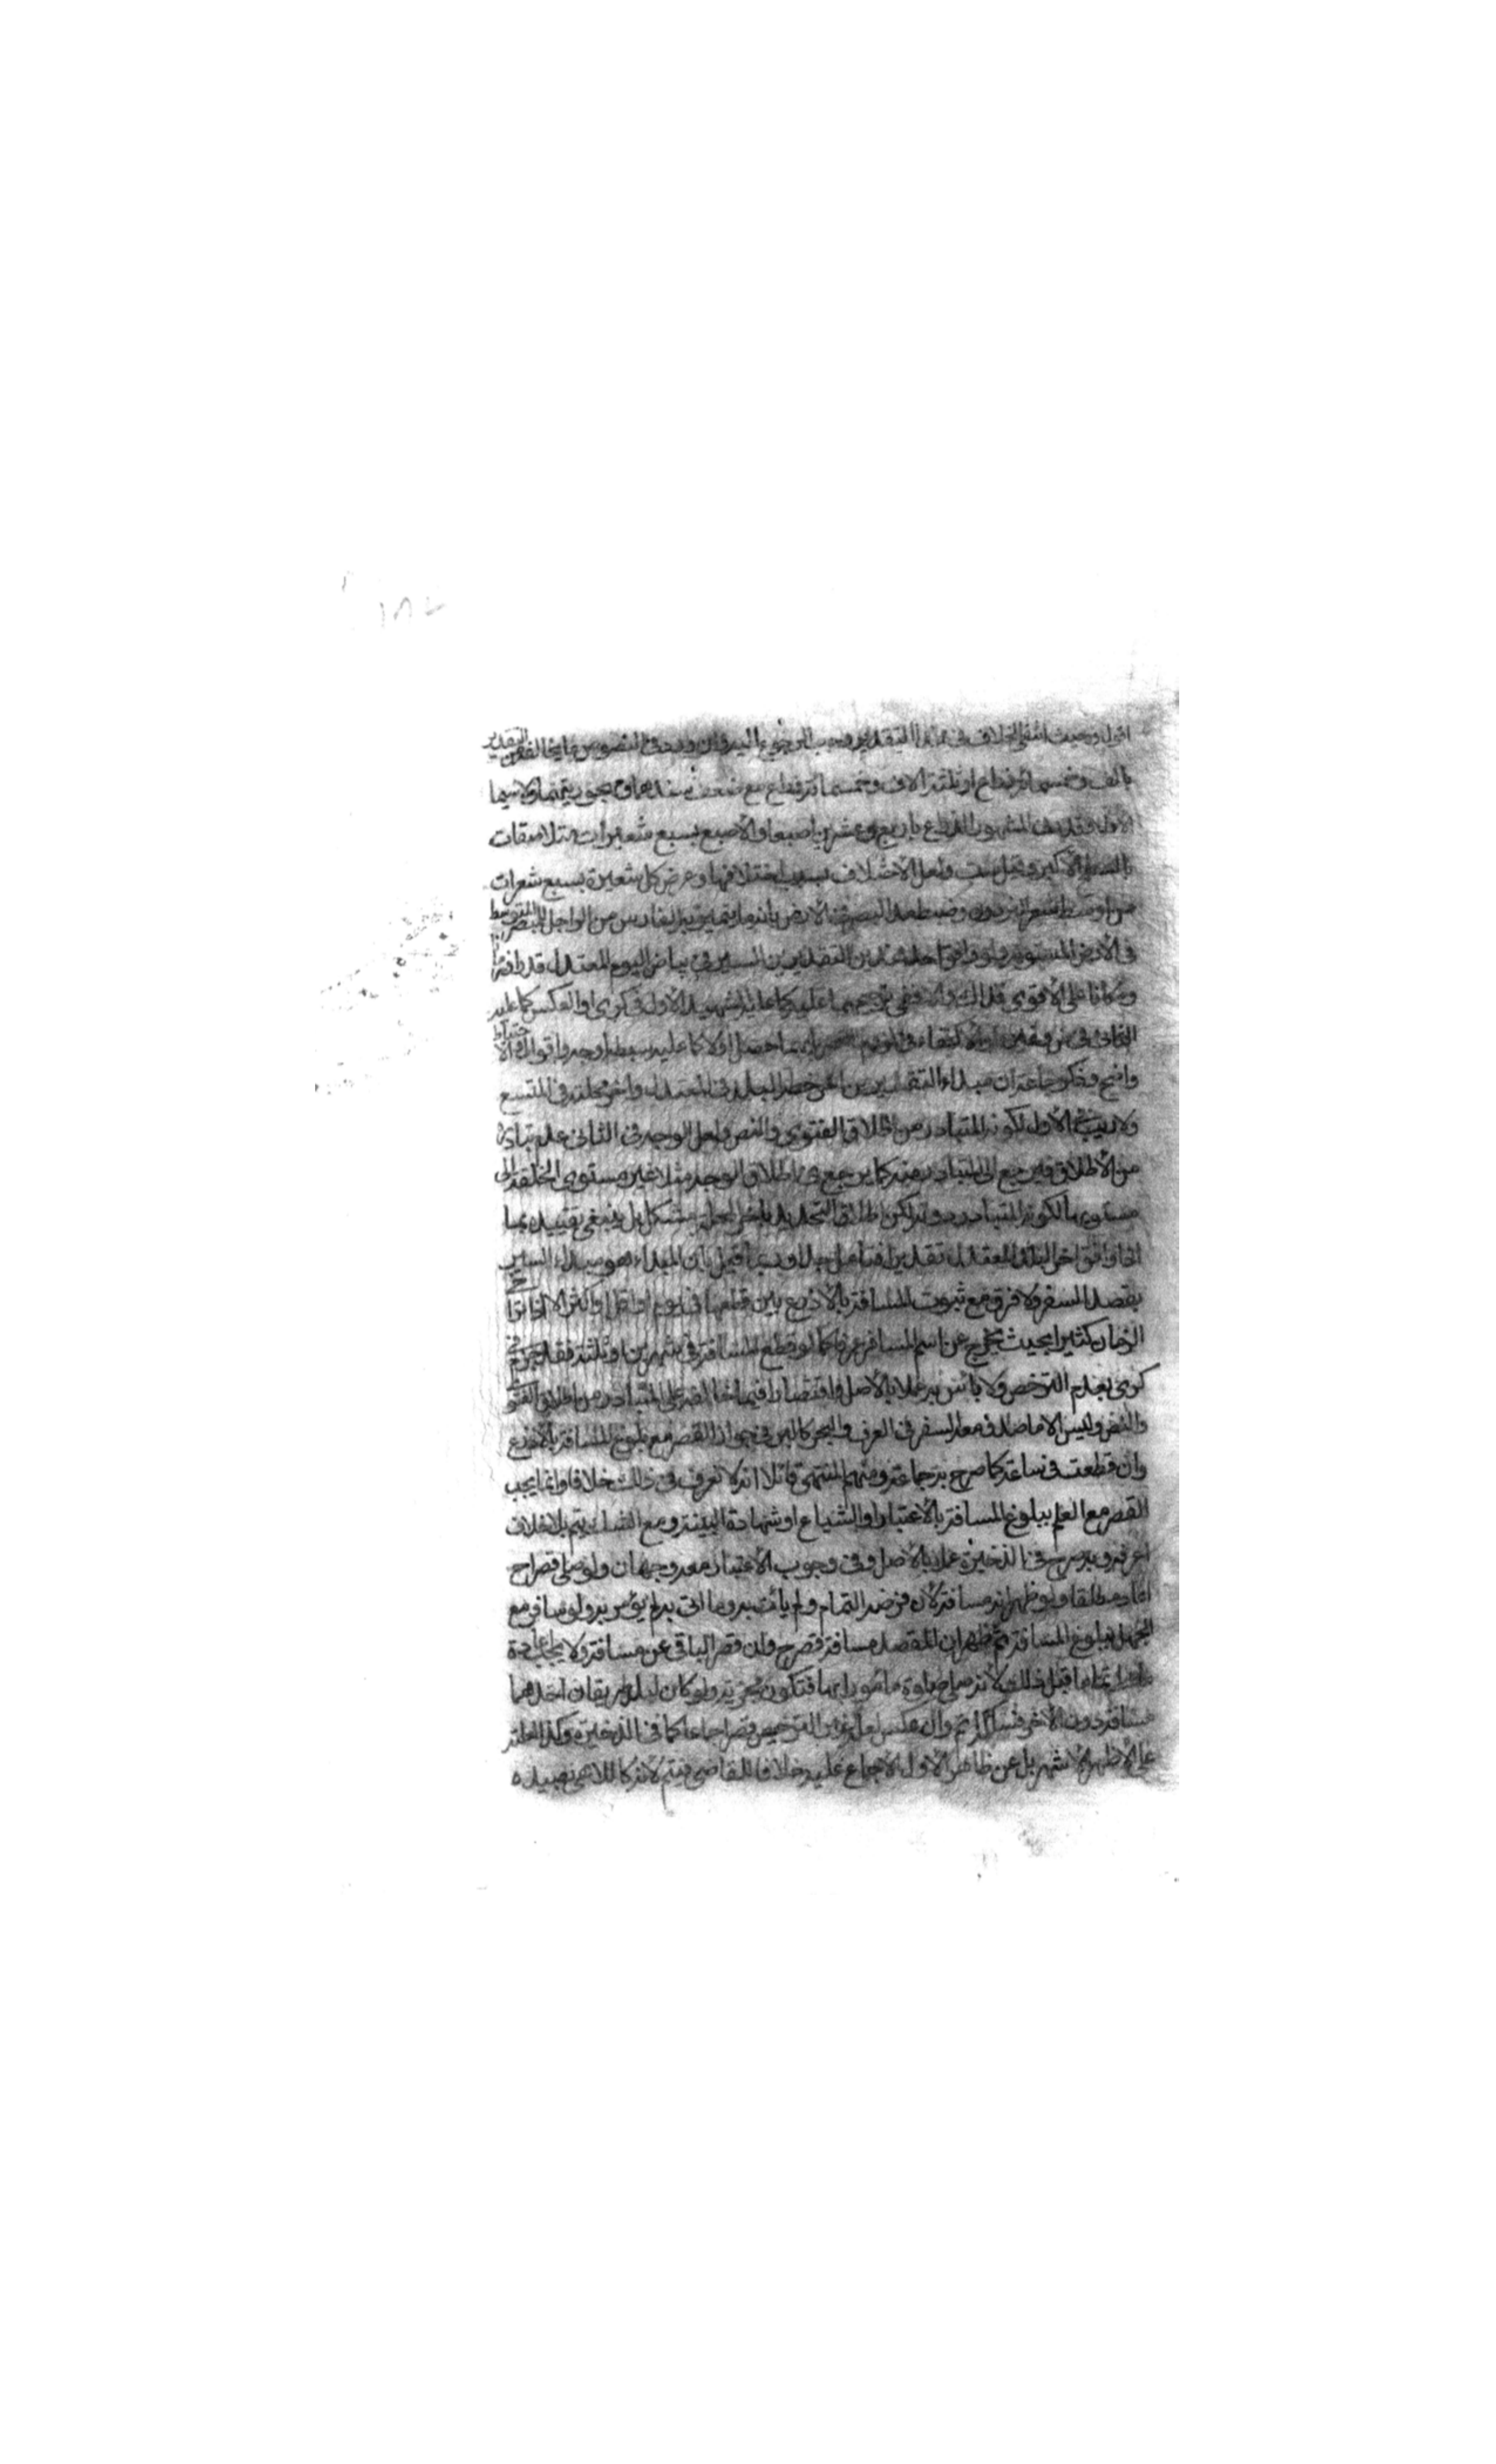 ١٨٢
اقول وحيث انتفى الخلاف في هذا التقدير وجب الرجوع اليه وان ورد في النصوص ما يخالفه من التقدير
بالف وخمسمائة ذراع او ثلثة الاف وخمسمائة ذراع مع ضعف سندهما ولا سيما
الاول وقدر في المشهور الذراع باربع وعشرين اصبعا والاصبع بسبع شعيرات متلاصقات
بالسطح الاكبر وقيل ست ولعل الاختلاف بسبب اختلافها وعرض كل شعيرة بسبع شعرات
من اوسط شعر البرذون وضبط مد البصر في الارض بانه ما يتميز به الفارس من الراجل للمبصر المتوسط
في الارض المستوية ولو وافق احد هذين التقديرين السير في بياض اليوم المعتدل قدرا فهو
والا ففي ترجيحهما عليه كما عليه الشهيد الاول في كرى او العكس كما عليه
الثاني في او الاكتفاء في لزوم القصر بايهما حصل اولا كما عليه سبطه اوجه واقوال والاحتياط
واضح وذكر جماعة ان مبداء التقدير من اخر خطة البلد في المعتدل واخر محلته في المتسع
ولا ريب في الاول لكونه المتبادر من اطلاق الفتوى والنص ولعل الوجه في الثاني عدم تبادره
من الاطلاق فليرجع الى المتبادر منه كما يرجع في اطلاق الوجه مثلا غير مستوى الخلقة الى
مستويها لكونه المتبادر دونه لكن اطلاق التحديد باخر المحلة مشكل بل ينبغي تقييده بما
اذا وافق اخر البلد المعتدل تقديرا فتامل جدا وربما قيل بان المبداء هو مبداء السير
بقصد السفر ولا فرق مع ثبوت المسافة بالاذرع بين قطعها في يوم او اقل او اكثر الا اذا تراخى
الزمان كثيرا بحيث يخرج عن اسم المسافر عرفا كما لو قطع المسافة في شهرين او ثلثة فقد جزم في
كرى بعدم الترخص ولا باس به عملا بالاصل واقتصارا فيما خالفه على المتبادر من اطلاق الفتوى
والنص وليس الا ما صدق معه السفر في العرف والبحر كالبر في جواز القصر مع بلوغ المسافة بالاذرع
وان قطعت في ساعة كما صرح به جماعة ومنهم المنتهى قائلا انه لا نعرف في ذلك خلافا وانما يجب
القصر مع العلم ببلوغ المسافة بالاعتبار او الشياع او شهادة البينة ومع الشك يتم بلا خلاف
اعرفه وبه صرح في الذخيرة عملا بالاصل وفي وجوب الاعتبار معه وجهان ولو صلى قصرا ح
اعاد مطلقا ولو ظهر انه مسافة لان فرضه التمام ولم يأت به وما اتى به لم يؤمر به ولو سافر مع
الجهل ببلوغ المسافة ثم ظهر ان المقصد مسافة قصر ح وان قصر الباقي عن مسافة ولا يجب اعادة
ما صلى تماما قبل ذلك لانه صلى صلوة مأمورا بها فتكون مجزية ولو كان لبلد طريقان احدهما
مسافة دون الاخر فسلك اتم وان عكس لعلة غير الترخيص قصر اجماعا كما في الذخيرة وكذا لعلته
على الاظهر الاشهر بل عن ظاهر الاول الاجماع عليه خلافا للقاضي فيتم لانه كاللاهي بصيده